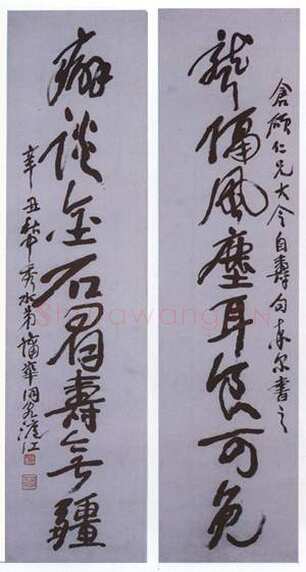 倉碩仁兄大令自壽句書之
聾隔風塵耳食可免
癖談金石眉壽無疆
辛丑秋中秀水弟蒲華同客滬江